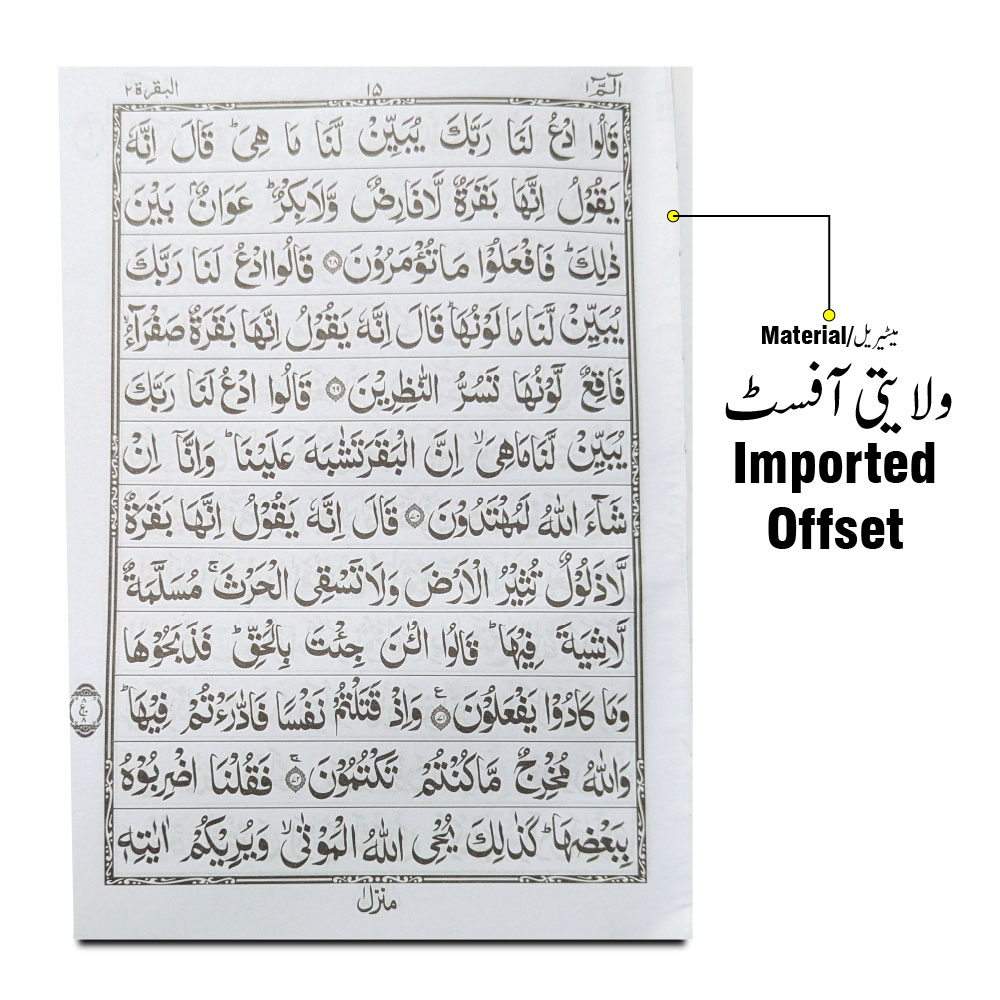 الٓمّٓ ۱ ۱۵ البقرة ۲
قَالُوا ادْعُ لَنَا رَبَّكَ يُبَيِّنْ لَّنَا مَا هِيَ ؕ قَالَ اِنَّهٗ
يَقُوْلُ اِنَّهَا بَقَرَةٌ لَّا فَارِضٌ وَّلَا بِكْرٌ ؕ عَوَانٌۢ بَيْنَ
ذٰلِكَ ؕ فَافْعَلُوْا مَا تُؤْمَرُوْنَ ۶۸ قَالُوا ادْعُ لَنَا رَبَّكَ
يُبَيِّنْ لَّنَا مَا لَوْنُهَا ؕ قَالَ اِنَّهٗ يَقُوْلُ اِنَّهَا بَقَرَةٌ صَفْرَآءُ
فَاقِعٌ لَّوْنُهَا تَسُرُّ النّٰظِرِيْنَ ۶۹ قَالُوا ادْعُ لَنَا رَبَّكَ
يُبَيِّنْ لَّنَا مَا هِيَ ۙ اِنَّ الْبَقَرَ تَشٰبَهَ عَلَيْنَا ؕ وَاِنَّاۤ اِنْ
شَآءَ اللّٰهُ لَمُهْتَدُوْنَ ۷۰ قَالَ اِنَّهٗ يَقُوْلُ اِنَّهَا بَقَرَةٌ
لَّا ذَلُوْلٌ تُثِيْرُ الْاَرْضَ وَلَا تَسْقِي الْحَرْثَ ۚ مُسَلَّمَةٌ
لَّا شِيَةَ فِيْهَا ؕ قَالُوا الْـٰٔنَ جِئْتَ بِالْحَقِّ ؕ فَذَبَحُوْهَا
وَمَا كَادُوْا يَفْعَلُوْنَ ۷۱ ع وَاِذْ قَتَلْتُمْ نَفْسًا فَادّٰرَءْتُمْ فِيْهَا ؕ
وَاللّٰهُ مُخْرِجٌ مَّا كُنْتُمْ تَكْتُمُوْنَ ۷۲ ۚ فَقُلْنَا اضْرِبُوْهُ
بِبَعْضِهَا ؕ كَذٰلِكَ يُحْيِ اللّٰهُ الْمَوْتٰى ۙ وَيُرِيْكُمْ اٰيٰتِهٖ
منزل ۱
Material/میٹیریل
ولایتی آفسٹ
Imported
Offset